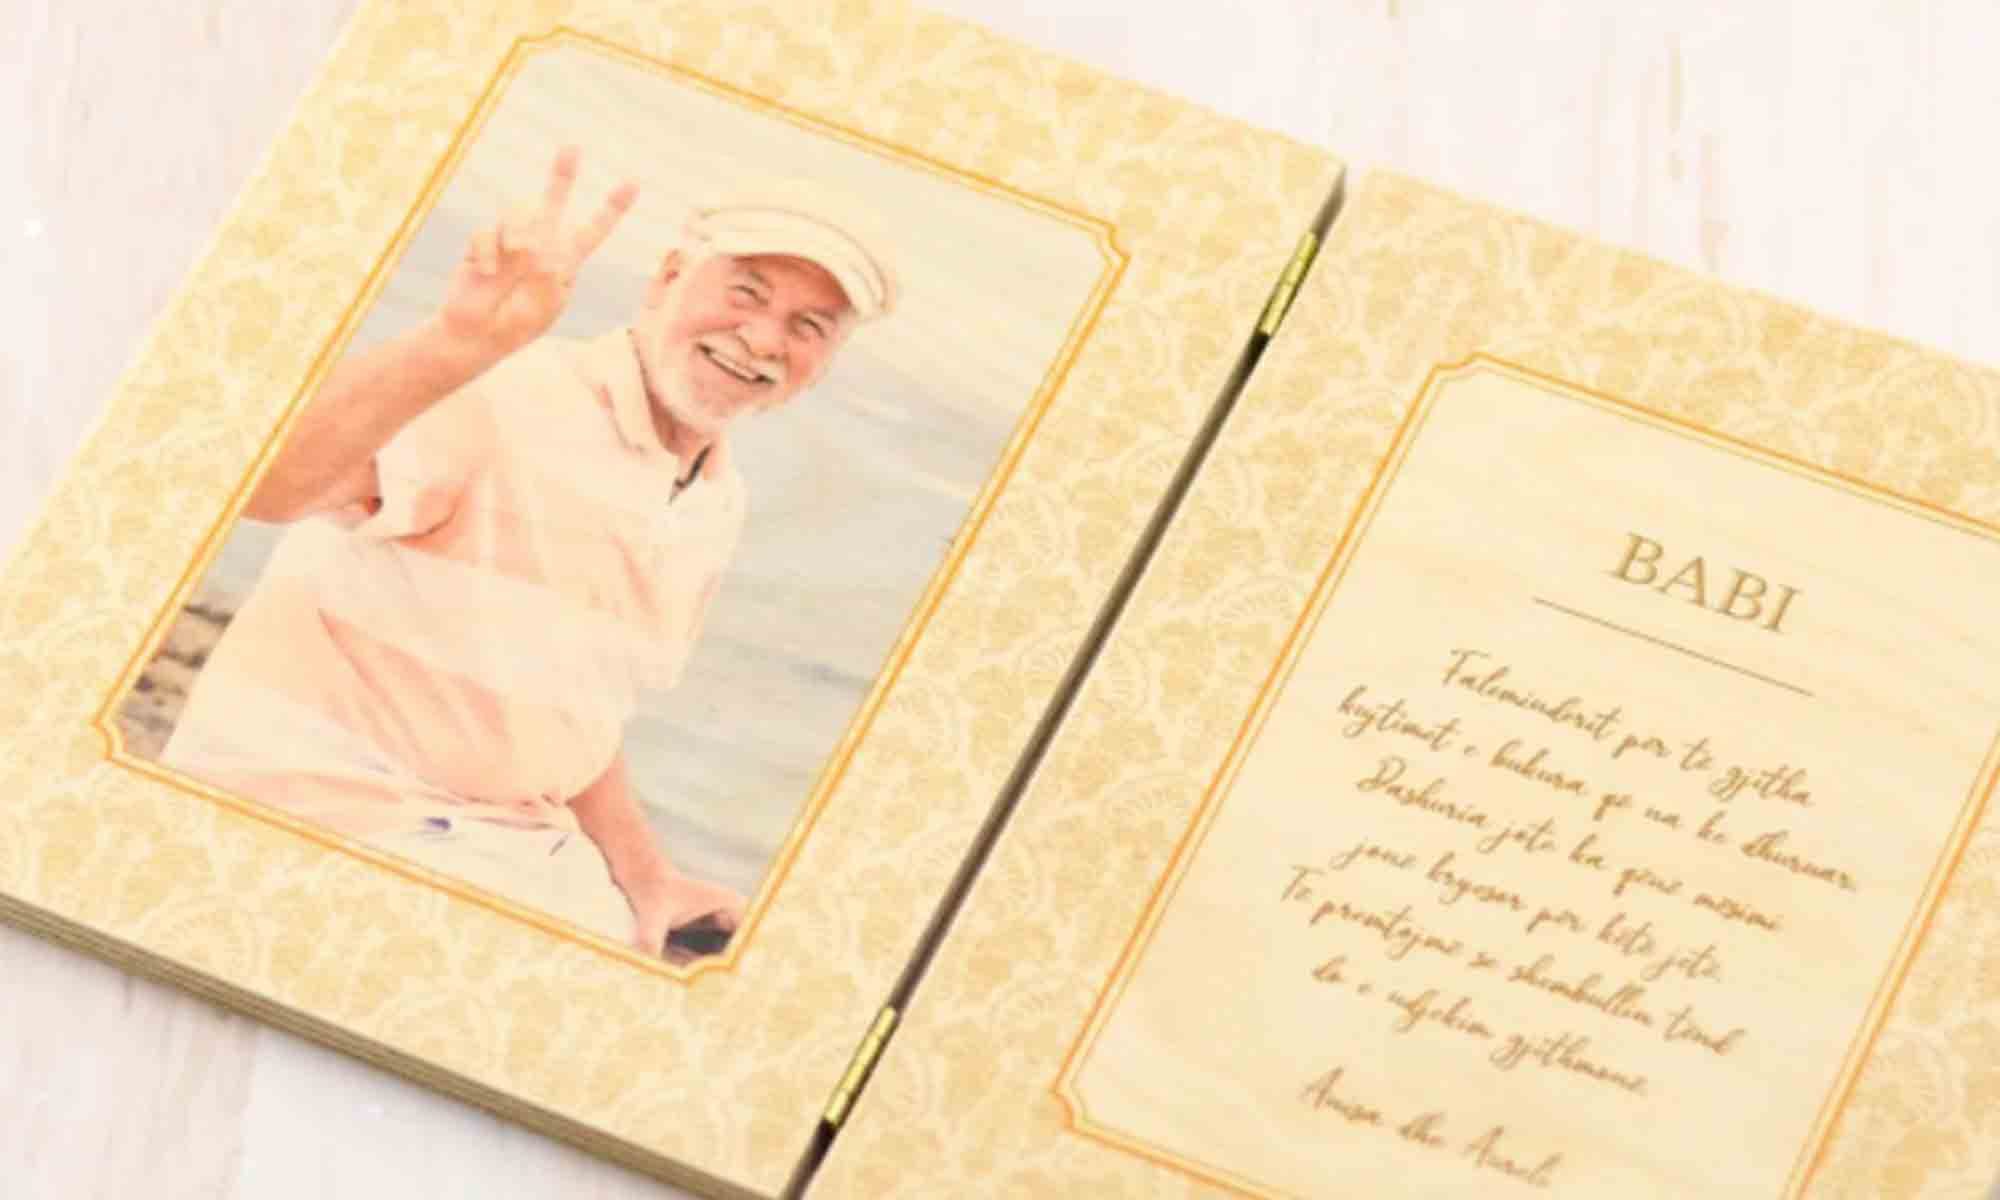 BABI
Faleminderit për të gjitha
kujtimet e bukura që na ke dhuruar.
Dashuria jote ka qenë mësimi
jonë kryesor për këtë jetë.
Të premtojmë se shembullin tënd
do e ndjekim gjithmonë.
Anisa dhe Aurela